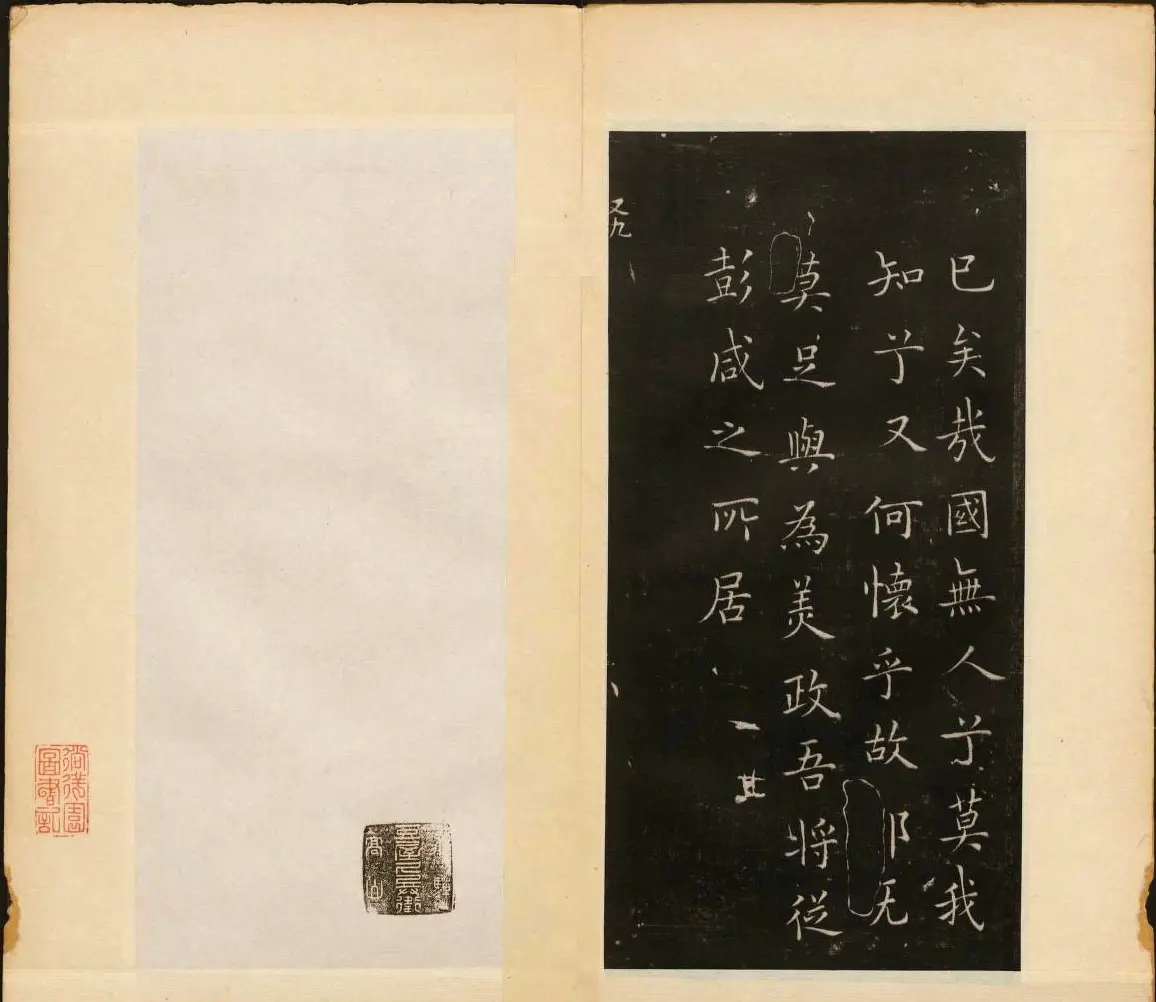 已矣哉國無人兮莫我
知兮又何懷乎故都既
莫足與為美政吾將從
彭咸之所居
其
又九